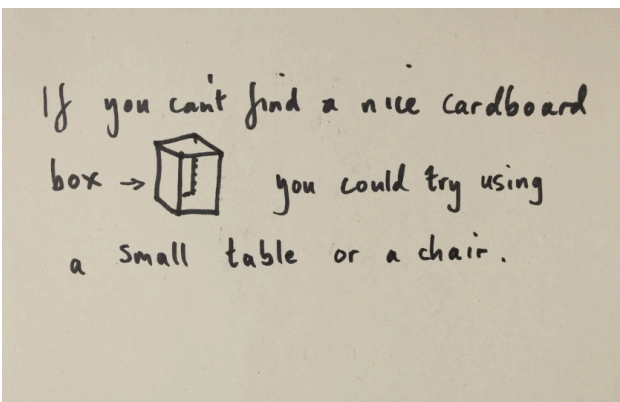 If you can't find a nice cardboard
box → you could try using
a small table or a chair.